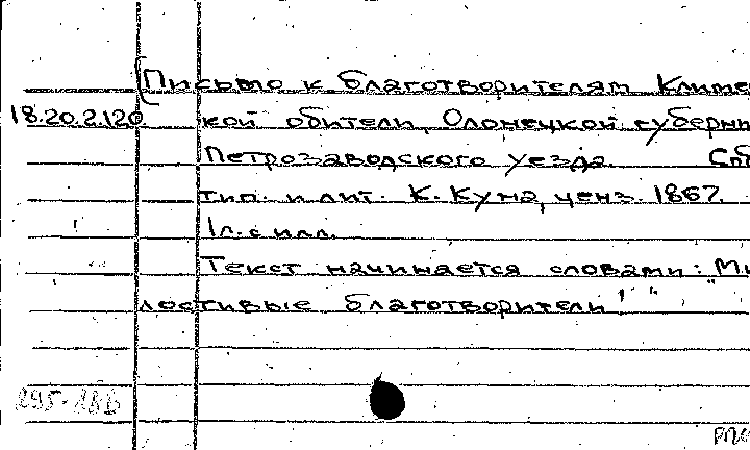 [Письмо к благотворителям Климе
18.20.2.120 кой обители, Олонецкой губерни
Петрозаводского уезда. Спб
тип. и лит. К. Куна, ценз. 1867.
1 л. с илл.
Текст начинается словами: "Ми
лостивые благотворители!"
295-